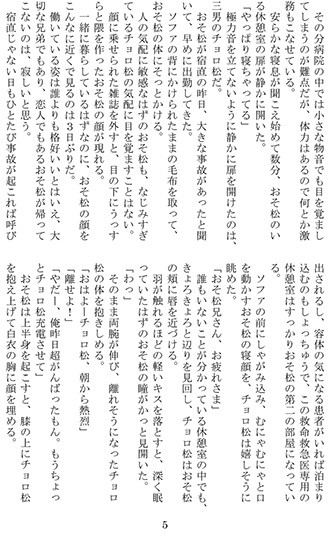 その分病院の中では小さな物音でも目を覚まし
てしまうのが難点だが、体力はあるので何とか激
務もこなせている。
　安らかな寝息が聞こえ始めて数分、おそ松のい
る休憩室の扉が静かに開いた。
「やっぱり寝ちゃってる」
　極力音を立てないように静かに扉を開けたのは、
三男のチョロ松だ。
　おそ松が宿直の昨日、大きな事故があったと聞
いて、早めに出勤してきた。
　ソファの背にかけられたままの毛布を取って、
おそ松の体にそっとかける。
　人の気配に敏感なはずのおそ松も、なじみすぎ
ているチョロ松の気配に目を覚ますことはない。
　顔に乗せられた雑誌を外すと、目の下にうっす
らと隈を作ったおそ松の顔が現れる。
　一緒に暮らしているはずなのに、おそ松の顔を
こんなに近くで見るのは3日ぶりだ。
　働いている姿は誰よりも格好いいとはいえ、大
切な兄弟でもあり、恋人でもあるおそ松が帰って
こないのは、寂しいと思う。
　宿直じゃない日もひとたび事故が起これば呼び
出されるし、容体の気になる患者がいれば泊まり
込むのもしょっちゅうで、この救命救急医専用の
休憩室はすっかりおそ松の第二の部屋になってい
る。
　ソファの前にしゃがみ込み、むにゃむにゃと口
を動かすおそ松の寝顔を、チョロ松は嬉しそうに
眺めた。
「おそ松兄さん、お疲れさま」
　誰もいないことが分かっている休憩室の中でも、
きょろきょろと辺りを見回し、チョロ松はおそ松
の頬に唇を近づける。
　羽が触れるほどの軽いキスを落とすと、深く眠
っていたはずのおそ松の瞳がかっと見開いた。
「わっ」
　そのまま両腕が伸び、離れそうになったチョロ
松の体を抱きしめる。
「おはよーチョロ松、朝から熱烈」
「離せよ！」
「やだー、俺昨日超がんばったもん。もうちょっ
とチョロ松充電させて」
　おそ松は上半身を起こすと、膝の上にチョロ松
を抱え上げて白衣の胸に顔を埋める。
5